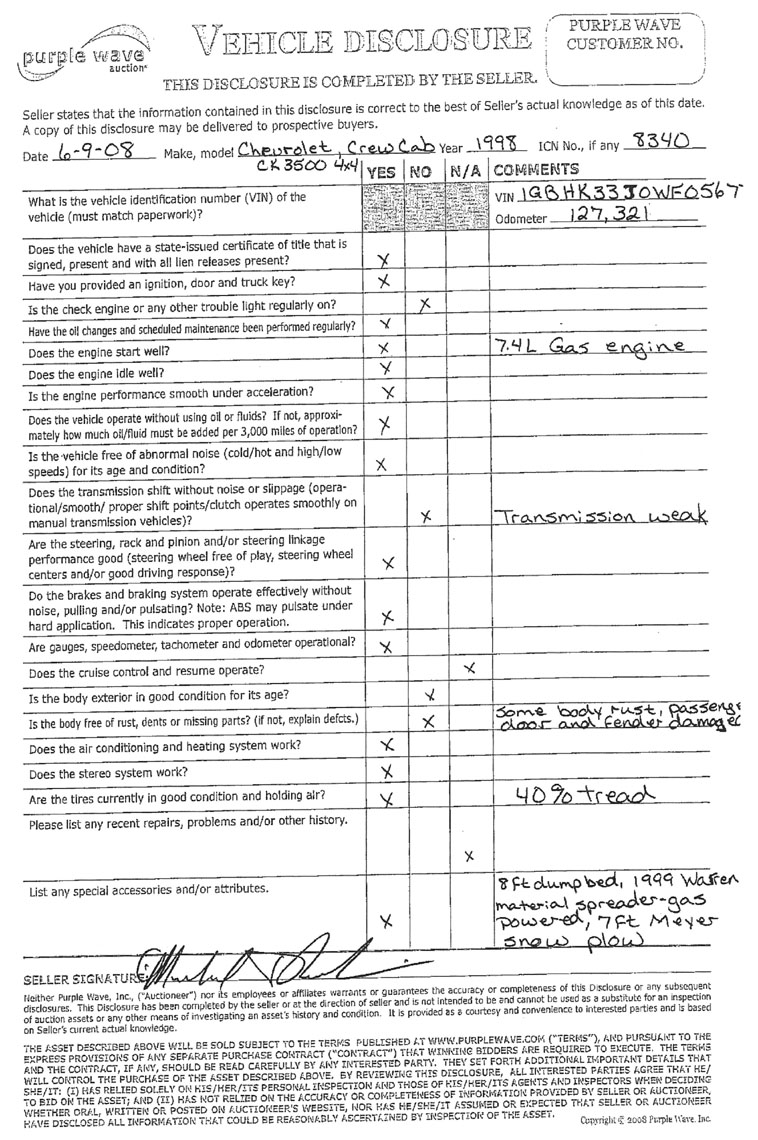 purple wave
auction
VEHICLE DISCLOSURE
PURPLE WAVE
CUSTOMER NO.
THIS DISCLOSURE IS COMPLETED BY THE SELLER.
Seller states that the information contained in this disclosure is correct to the best of Seller's actual knowledge as of this date.
A copy of this disclosure may be delivered to prospective buyers.
Date 6-9-08 Make, model Chevrolet, Crew Cab Year 1998 ICN No., if any 8340
CK3500 4x4 YES NO N/A COMMENTS
What is the vehicle identification number (VIN) of the
vehicle (must match paperwork)?
VIN 1GBHK33J0WF0567
Odometer 127,321
Does the vehicle have a state-issued certificate of title that is
signed, present and with all lien releases present? X
Have you provided an ignition, door and truck key? X
Is the check engine or any other trouble light regularly on? X
Have the oil changes and scheduled maintenance been performed regularly? X
Does the engine start well? X 7.4L Gas engine
Does the engine idle well? X
Is the engine performance smooth under acceleration? X
Does the vehicle operate without using oil or fluids? If not, approxi-
mately how much oil/fluid must be added per 3,000 miles of operation? X
Is the vehicle free of abnormal noise (cold/hot and high/low
speeds) for its age and condition? X
Does the transmission shift without noise or slippage (opera-
tional/smooth/ proper shift points/clutch operates smoothly on
manual transmission vehicles)? X Transmission weak
Are the steering, rack and pinion and/or steering linkage
performance good (steering wheel free of play, steering wheel
centers and/or good driving response)? X
Do the brakes and braking system operate effectively without
noise, pulling and/or pulsating? Note: ABS may pulsate under
hard application. This indicates proper operation. X
Are gauges, speedometer, tachometer and odometer operational? X
Does the cruise control and resume operate? X
Is the body exterior in good condition for its age? X
Some body rust, passeng
Is the body free of rust, dents or missing parts? (if not, explain defcts.) X door and fender damaged
Does the air conditioning and heating system work? X
Does the stereo system work? X
Are the tires currently in good condition and holding air? X 40% tread
Please list any recent repairs, problems and/or other history.
X
List any special accessories and/or attributes.
X
8ft dumpbed, 1999 Warren
material spreader-gas
powered, 7ft Meyer
snow plow
SELLER SIGNATURE:
Neither Purple Wave, Inc., ("Auctioneer") nor its employees or affiliates warrants or guarantees the accuracy or completeness of this Disclosure or any subsequent
disclosures. This Disclosure has been completed by the seller or at the direction of seller and is not intended to be and cannot be used as a substitute for an inspection
of auction assets or any other means of investigating an asset's history and condition. It is provided as a courtesy and convenience to interested parties and is based
on Seller's current actual knowledge.
THE ASSET DESCRIBED ABOVE WILL BE SOLD SUBJECT TO THE TERMS PUBLISHED AT WWW.PURPLEWAVE.COM ("TERMS"), AND PURSUANT TO THE
EXPRESS PROVISIONS OF ANY SEPARATE PURCHASE CONTRACT ("CONTRACT") THAT WINNING BIDDERS ARE REQUIRED TO EXECUTE. THE TERMS
AND THE CONTRACT, IF ANY, SHOULD BE READ CAREFULLY BY ANY INTERESTED PARTY. THEY SET FORTH ADDITIONAL IMPORTANT DETAILS THAT
WILL CONTROL THE PURCHASE OF THE ASSET DESCRIBED ABOVE. BY REVIEWING THIS DISCLOSURE, ALL INTERESTED PARTIES AGREE THAT HE/
SHE/IT: (I) HAS RELIED SOLELY ON HIS/HER/ITS PERSONAL INSPECTION AND THOSE OF HIS/HER/ITS AGENTS AND INSPECTORS WHEN DECIDING
TO BID ON THE ASSET; AND (II) HAS NOT RELIED ON THE ACCURACY OR COMPLETENESS OF INFORMATION PROVIDED BY SELLER OR AUCTIONEER,
WHETHER ORAL, WRITTEN OR POSTED ON AUCTIONEER'S WEBSITE, NOR HAS HE/SHE/IT ASSUMED OR EXPECTED THAT SELLER OR AUCTIONEER
HAVE DISCLOSED ALL INFORMATION THAT COULD BE REASONABLY ASCERTAINED BY INSPECTION OF THE ASSET.
Copyright © 2008 Purple Wave, Inc.